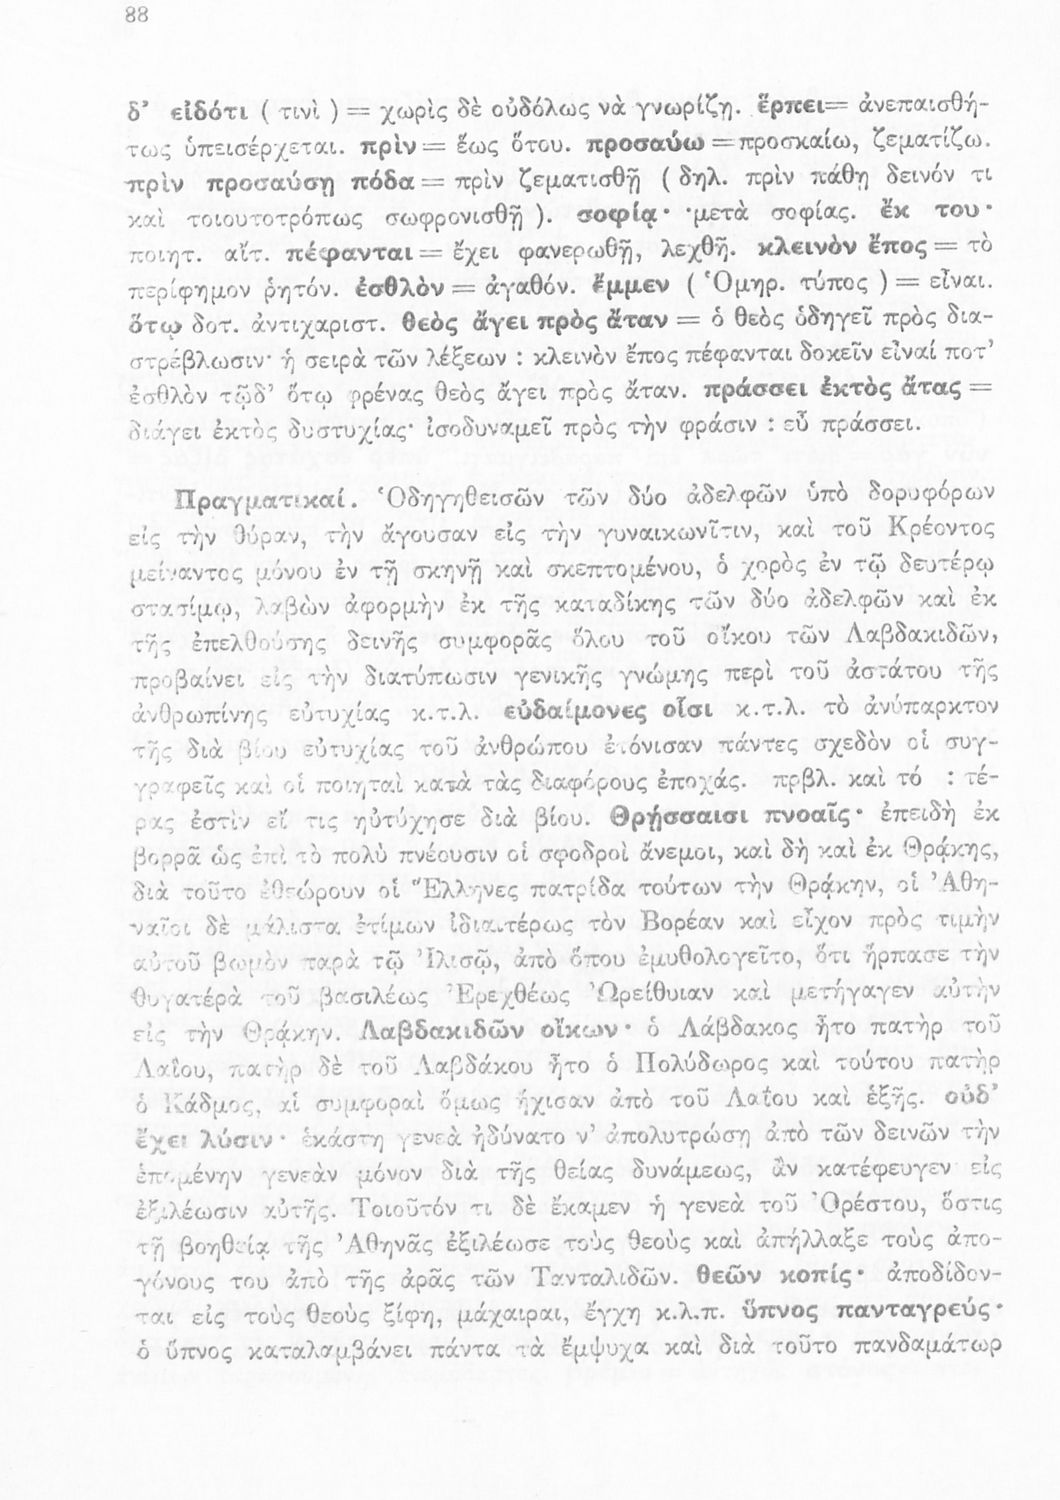 88
δ’ εἰδότι ( τινὶ ) = χωρὶς δὲ οὐδόλως νὰ γνωρίζῃ. ἕρπει= ἀνεπαισθή-
τως ὑπεισέρχεται. πρὶν = ἕως ὅτου. προσαύω =προσκαίω, ζεματίζω.
πρὶν προσαύσῃ πόδα = πρὶν ζεματισθῇ ( δηλ. πρὶν πάθῃ δεινόν τι
καὶ τοιουτοτρόπως σωφρονισθῇ ). σοφίᾳ· μετὰ σοφίας. ἔκ του·
ποιητ. αἴτ. πέφανται = ἔχει φανερωθῇ, λεχθῇ. κλεινὸν ἔπος = τὸ
περίφημον ῥητόν. ἐσθλὸν = ἀγαθόν. ἔμμεν ( Ὁμηρ. τύπος ) = εἶναι.
ὅτῳ δοτ. ἀντιχαριστ. θεὸς ἄγει πρὸς ἄταν = ὁ θεὸς ὁδηγεῖ πρὸς δια-
στρέβλωσιν· ἡ σειρὰ τῶν λέξεων : κλεινὸν ἔπος πέφανται δοκεῖν εἶναί ποτ’
ἐσθλὸν τῷδ’ ὅτῳ φρένας θεὸς ἄγει πρὸς ἄταν. πράσσει ἐκτὸς ἄτας =
διάγει ἐκτὸς δυστυχίας· ἰσοδυναμεῖ πρὸς τὴν φράσιν : εὖ πράσσει.
Πραγματικαί. Ὁδηγηθεισῶν τῶν δύο ἀδελφῶν ὑπὸ δορυφόρων
εἰς τὴν θύραν, τὴν ἄγουσαν εἰς τὴν γυναικωνῖτιν, καὶ τοῦ Κρέοντος
μείναντος μόνου ἐν τῇ σκηνῇ καὶ σκεπτομένου, ὁ χορὸς ἐν τῷ δευτέρῳ
στασίμῳ, λαβὼν ἀφορμὴν ἐκ τῆς καταδίκης τῶν δύο ἀδελφῶν καὶ ἐκ
τῆς ἐπελθούσης δεινῆς συμφορᾶς ὅλου τοῦ οἴκου τῶν Λαβδακιδῶν,
προβαίνει εἰς τὴν διατύπωσιν γενικῆς γνώμης περὶ τοῦ ἀστάτου τῆς
ἀνθρωπίνης εὐτυχίας κ.τ.λ. εὐδαίμονες οἷσι κ.τ.λ. τὸ ἀνύπαρκτον
τῆς διὰ βίου εὐτυχίας τοῦ ἀνθρώπου ἐτόνισαν πάντες σχεδὸν οἱ συγ-
γραφεῖς καὶ οἱ ποιηταὶ κατὰ τὰς διαφόρους ἐποχάς. πρβλ. καὶ τό : τέ-
ρας ἐστὶν εἴ τις ηὐτύχησε διὰ βίου. Θρῄσσαισι πνοαῖς· ἐπειδὴ ἐκ
βορρᾶ ὡς ἐπὶ τὸ πολὺ πνέουσιν οἱ σφοδροὶ ἄνεμοι, καὶ δὴ καὶ ἐκ Θρᾴκης,
διὰ τοῦτο ἐθεώρουν οἱ Ἕλληνες πατρίδα τούτων τὴν Θρᾴκην, οἱ Ἀθη-
ναῖοι δὲ μάλιστα ἐτίμων ἰδιαιτέρως τὸν Βορέαν καὶ εἶχον πρὸς τιμὴν
αὐτοῦ βωμὸν παρὰ τῷ Ἰλισῷ, ἀπὸ ὅπου ἐμυθολογεῖτο, ὅτι ἥρπασε τὴν
θυγατέρὰ τοῦ βασιλέως Ἐρεχθέως Ὠρείθυιαν καὶ μετήγαγεν αὐτὴν
εἰς τὴν Θρᾴκην. Λαβδακιδῶν οἴκων· ὁ Λάβδακος ἦτο πατὴρ τοῦ
Λαΐου, πατὴρ δὲ τοῦ Λαβδάκου ἦτο ὁ Πολύδωρος καὶ τούτου πατὴρ
ὁ Κάδμος, αἱ συμφοραὶ ὅμως ἤχισαν ἀπὸ τοῦ Λαΐου καὶ ἑξῆς. οὐδ’
ἔχει λύσιν· ἑκάστη γενεὰ ἠδύνατο ν’ ἀπολυτρώσῃ ἀπὸ τῶν δεινῶν τὴν
ἑπομένην γενεὰν μόνον διὰ τῆς θείας δυνάμεως, ἂν κατέφευγεν εἰς
ἐξιλέωσιν αὐτῆς. Τοιοῦτόν τι δὲ ἔκαμεν ἡ γενεὰ τοῦ Ὀρέστου, ὅστις
τῇ βοηθείᾳ τῆς Ἀθηνᾶς ἐξιλέωσε τοὺς θεοὺς καὶ ἀπήλλαξε τοὺς ἀπο-
γόνους του ἀπὸ τῆς ἀρᾶς τῶν Τανταλιδῶν. θεῶν κοπίς· ἀποδίδον-
ται εἰς τοὺς θεοὺς ξίφη, μάχαιραι, ἔγχη κ.λ.π. ὕπνος πανταγρεύς·
ὁ ὕπνος καταλαμβάνει πάντα τὰ ἔμψυχα καὶ διὰ τοῦτο πανδαμάτωρ